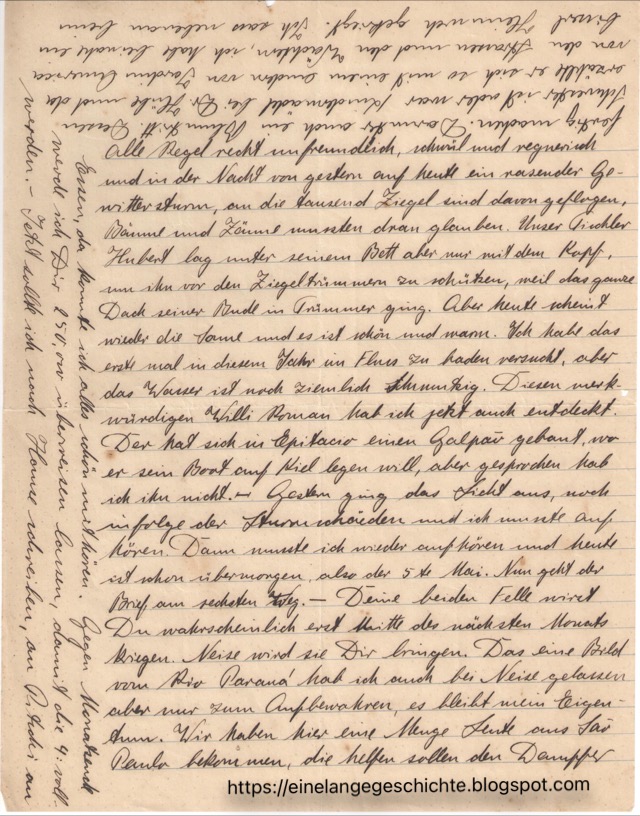 alle Regel recht unfreundlich, schwül und regnerisch
und in der Nacht von gestern auf heute ein rasender Ge-
wittersturm, an die tausend Ziegel sind davon geflogen,
Bäume und Zäune mussten dran glauben. Unser Tischler
Hubert lag unter seinem Bett aber nur mit dem Kopf,
um ihn vor den Ziegeltrümmern zu schützen, weil das ganze
Dach seiner Bude in Trümmer ging. Aber heute scheint
wieder die Sonne und es ist schön und warm. Ich habe das
erste mal in diesem Jahr im Fluss zu baden versucht, aber
das Wasser ist noch ziemlich schmutzig. Diesen merk-
würdigen Willi Roman hab ich jetzt auch entdeckt.
Der hat sich in Epitacio einen Galpão gebaut, wo
er sein Boot auf Kiel legen will, aber gesprochen hab
ich ihn nicht. – Gestern ging das Licht aus, noch
infolge der Sturmschäeden und ich musste auf
hören. Dann musste ich wieder aufhören und heute
ist schon übermorgen, also der 5te Mai. Nun geht der
Brief am sechsten weg. – Deine beiden Felle wirst
Du wahrscheinlich erst Mitte des nächsten Monats
kriegen. Neise wird sie Dir bringen. Das eine Bild
vom Rio Paraná hab ich auch bei Neise gelassen
aber nur zum Aufbewahren, es bleibt mein Eigen-
tum. Wir haben hier eine Menge Leute aus São
Paulo bekommen, die helfen sollen den Dampfer
fertig machen. Darunter auch ein
Schwester ist oder war Kindermädel bei Dr. und da
erzählte er sich so mit einem andern von Jardim America
von den Strassen und den Wächtern, ich habe beinahe ein
bissel Heimweh gekriegt. Ich sass nebenan beim
Essen, da konnte ich alles schön mithören. Gegen Monatsende
werde ich Dir 250,00 überweisen lassen, damit die 4: voll
werden. – Jetzt sollte ich nach Hause schreiben, an
https://einelangegeschichte.blogspot.com